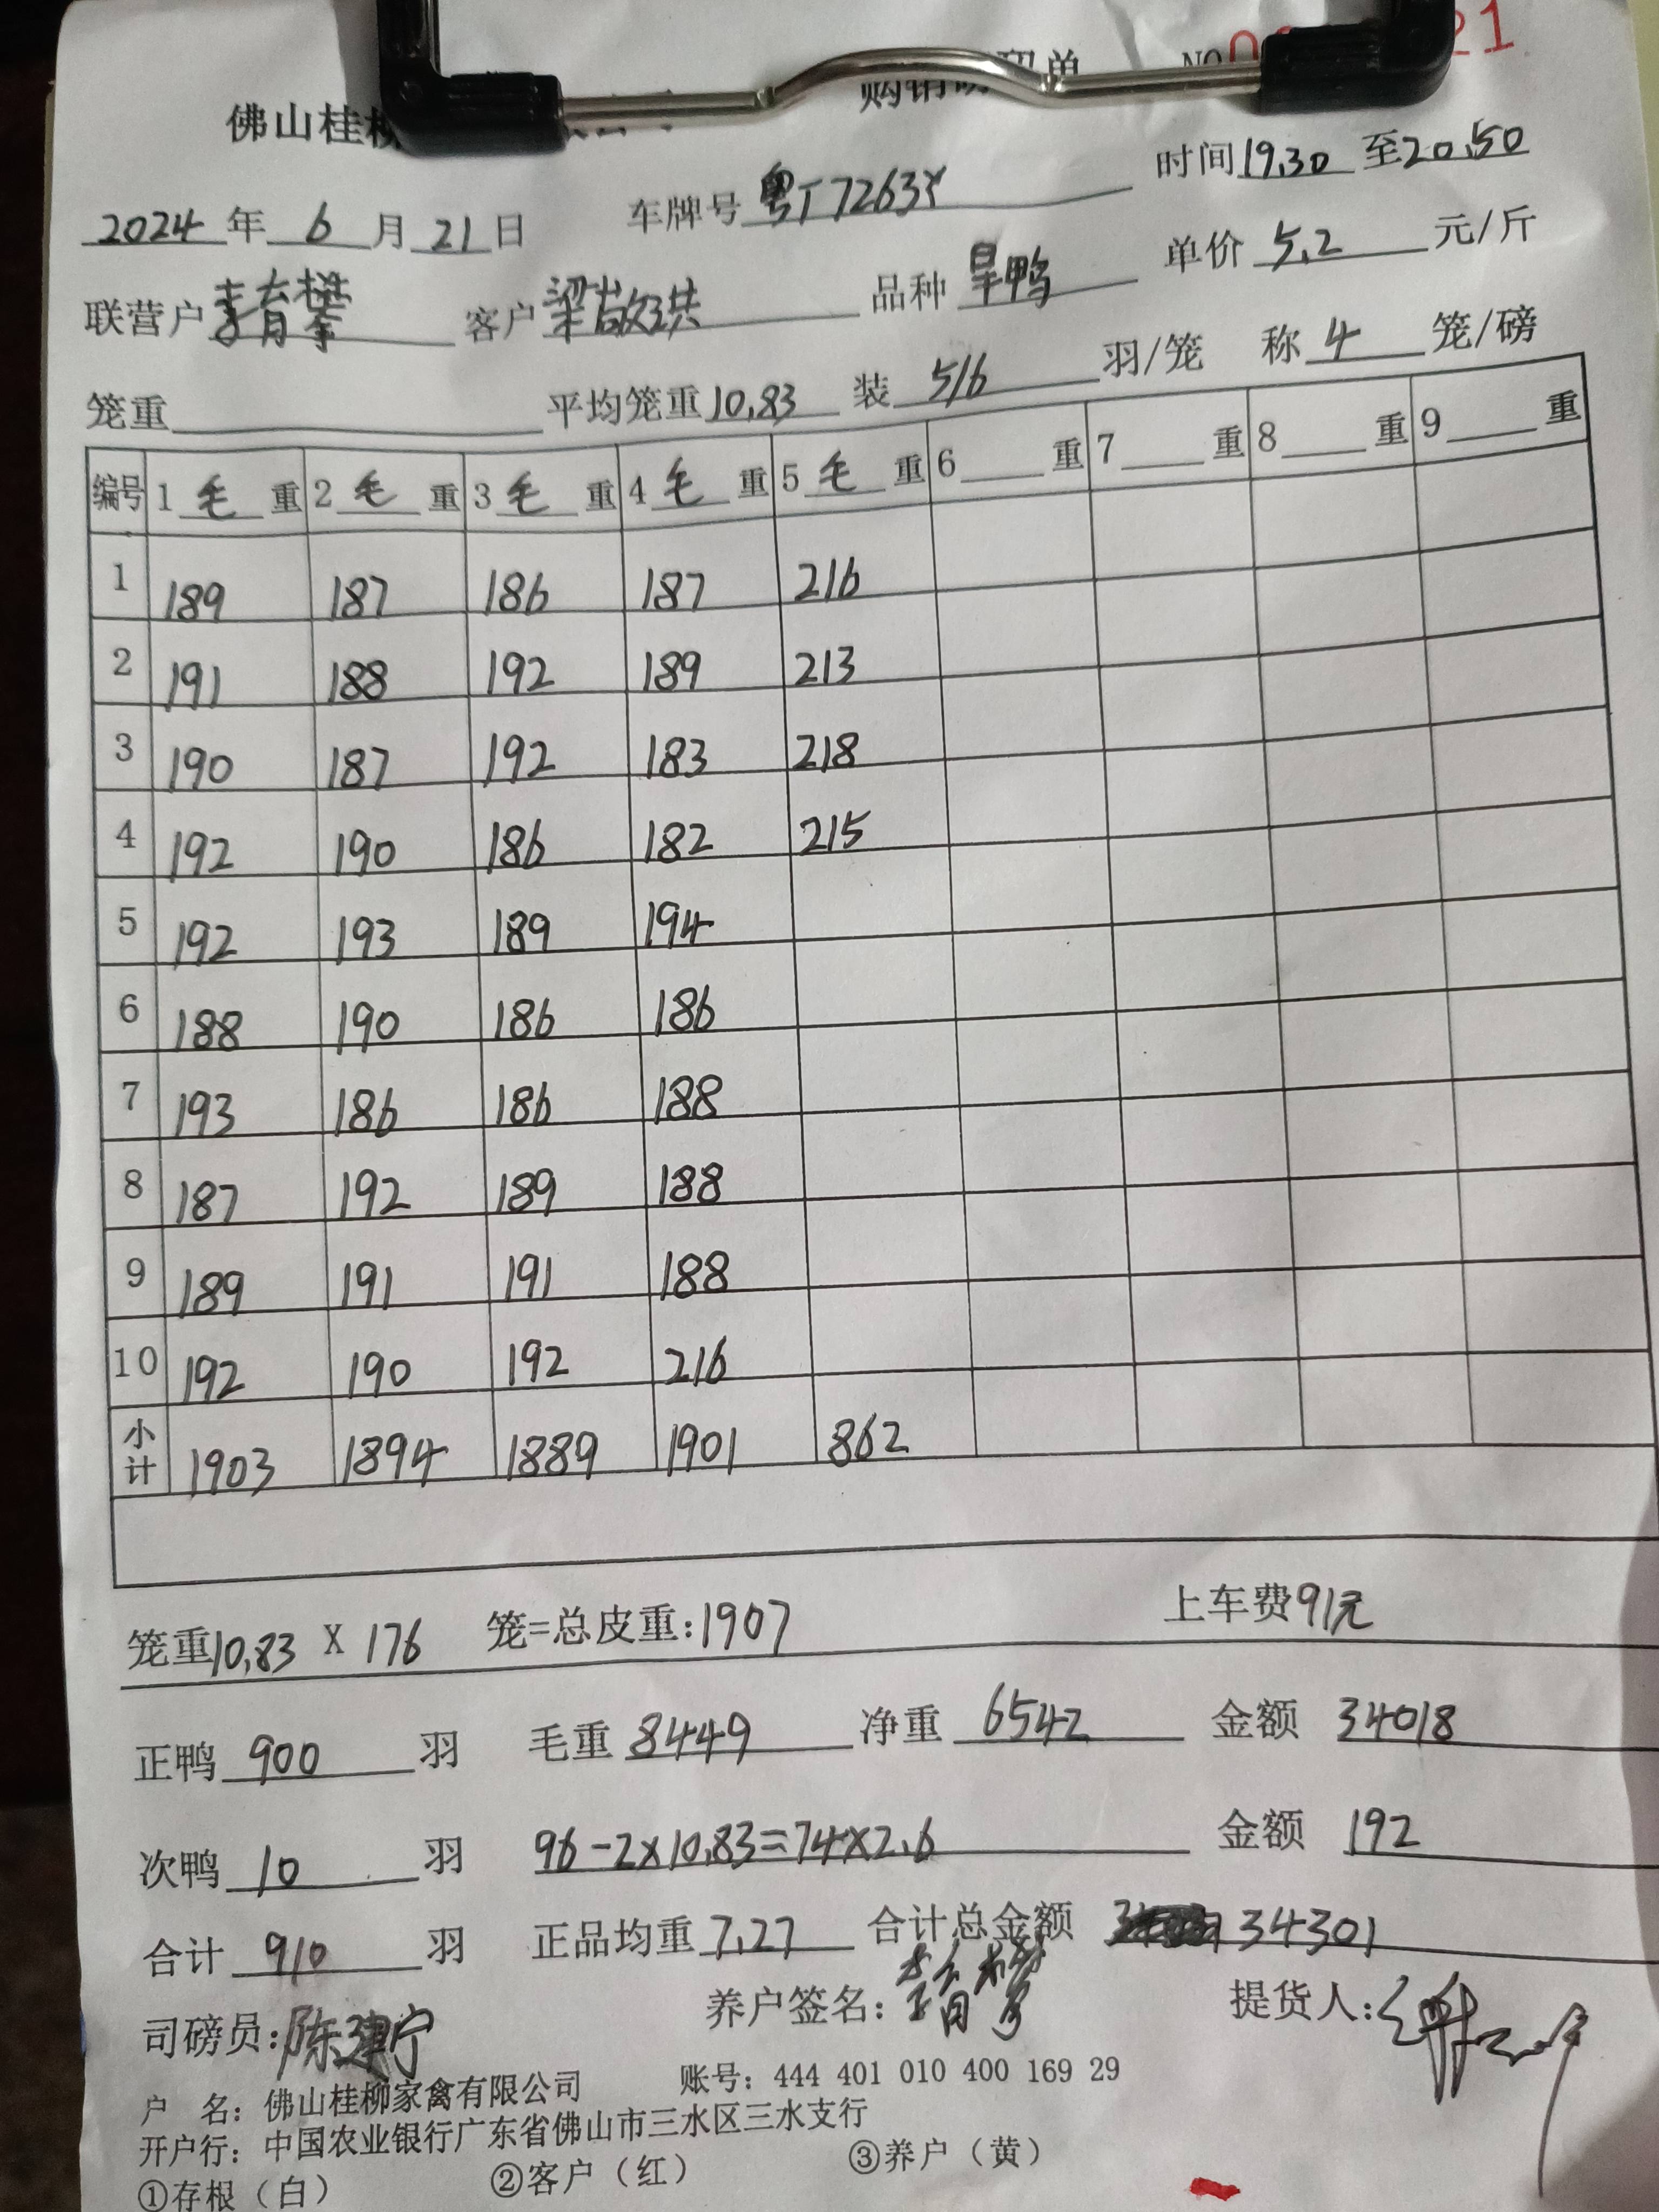 佛山桂柳 购销 单 NO 21
2024年 6月21日 车牌号 粤T7263Y 时间19.30至20.50
联营户 李育攀 客户 梁敬洪 品种 旱鸭 单价 5.2 元/斤
笼重 平均笼重10.83 装 5/6 羽/笼 称 4 笼/磅
编号 1 毛 重 2 毛 重 3 毛 重 4 毛 重 5 毛 重 6 重 7 重 8 重 9 重
1 189 187 186 187 216
2 191 188 192 189 213
3 190 187 192 183 218
4 192 190 186 182 215
5 192 193 189 194
6 188 190 186 186
7 193 186 186 188
8 187 192 189 188
9 189 191 191 188
10 192 190 192 216
小计 1903 1894 1889 1901 862
笼重10.83 X 176 笼=总皮重:1907 上车费91元
正鸭 900 羽 毛重 8449 净重 6542 金额 34018
次鸭 10 羽 96-2×10.83=74×2.6 金额 192
合计 910 羽 正品均重 7.27 合计总金额 34301
司磅员:陈建宁 养户签名: 李育攀 提货人:
户 名: 佛山桂柳家禽有限公司 账号: 444 401 010 400 169 29
开户行: 中国农业银行广东省佛山市三水区三水支行
①存根（白） ②客户（红） ③养户（黄）